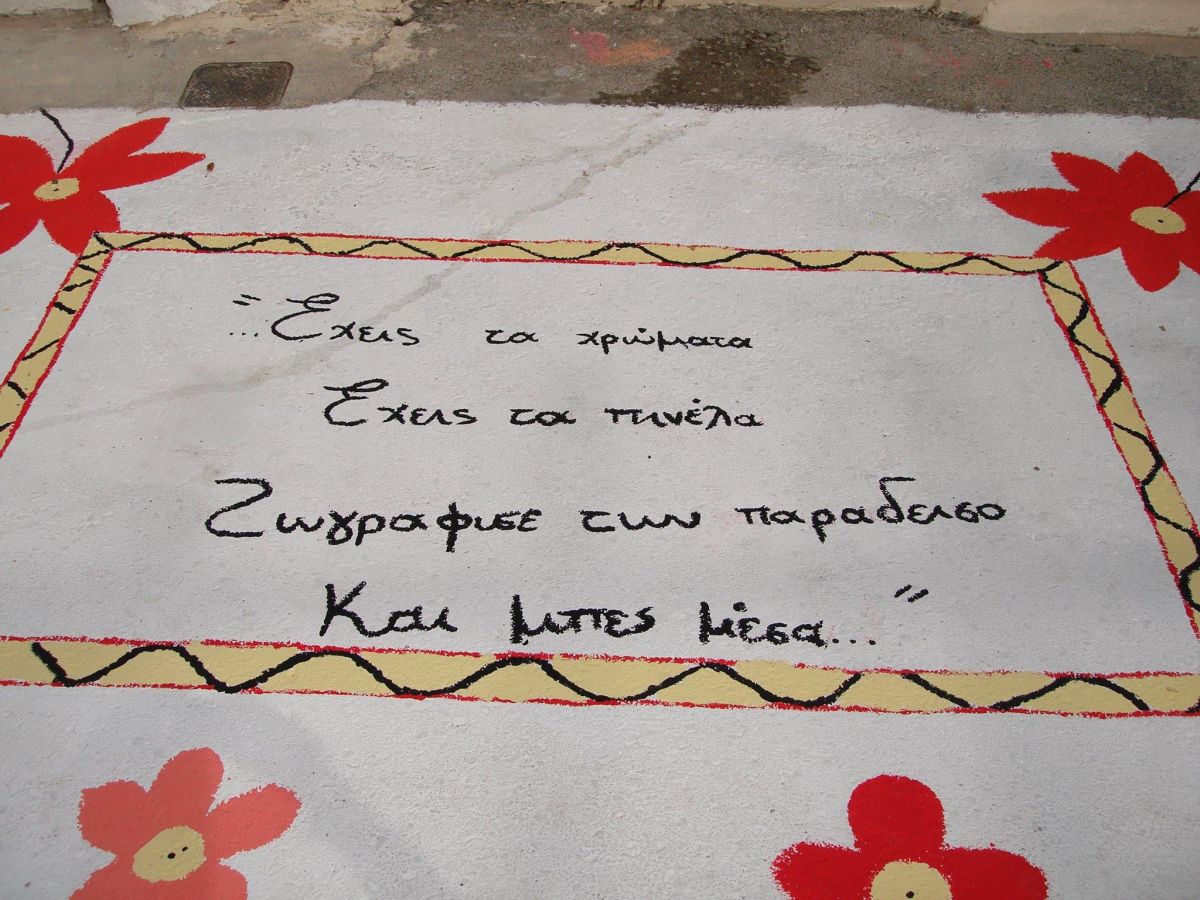 "...Έχεις τα χρώματα
Έχεις τα πινέλα
Ζωγραφισε των παραδεισο
Και μπες μέσα..."